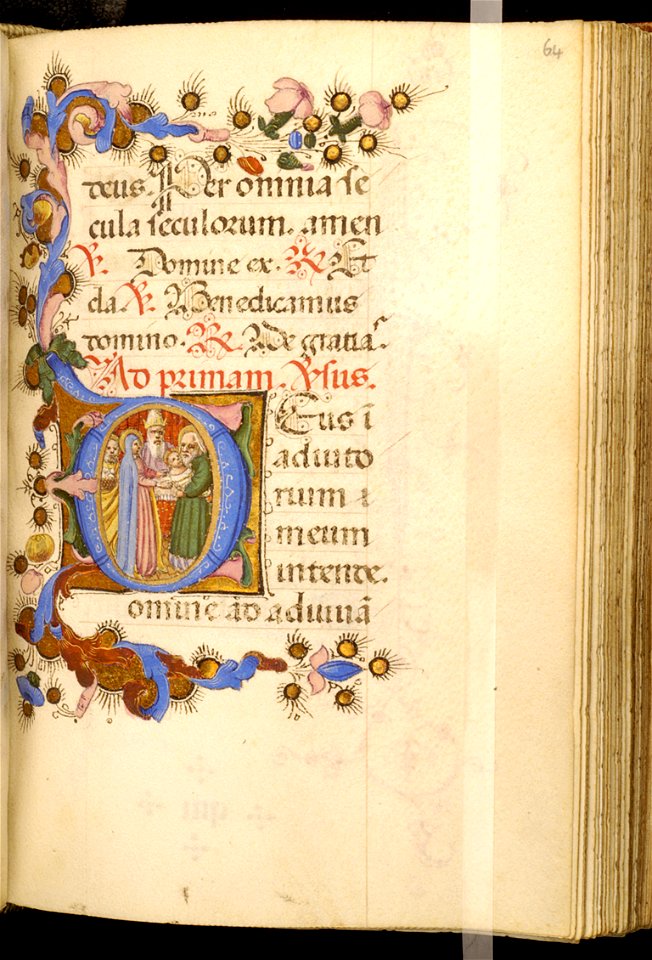 64
deus. Per om̄nia se
cula seculorum. amen
℣. Domine ex. ℟. Et
cla ℣. Benedicamus
domino. ℟. Deo gratia
Ad primam. Ꝟsus.
DEus ī
adiuto
rium
meum
intende.
omine ad adiuuā